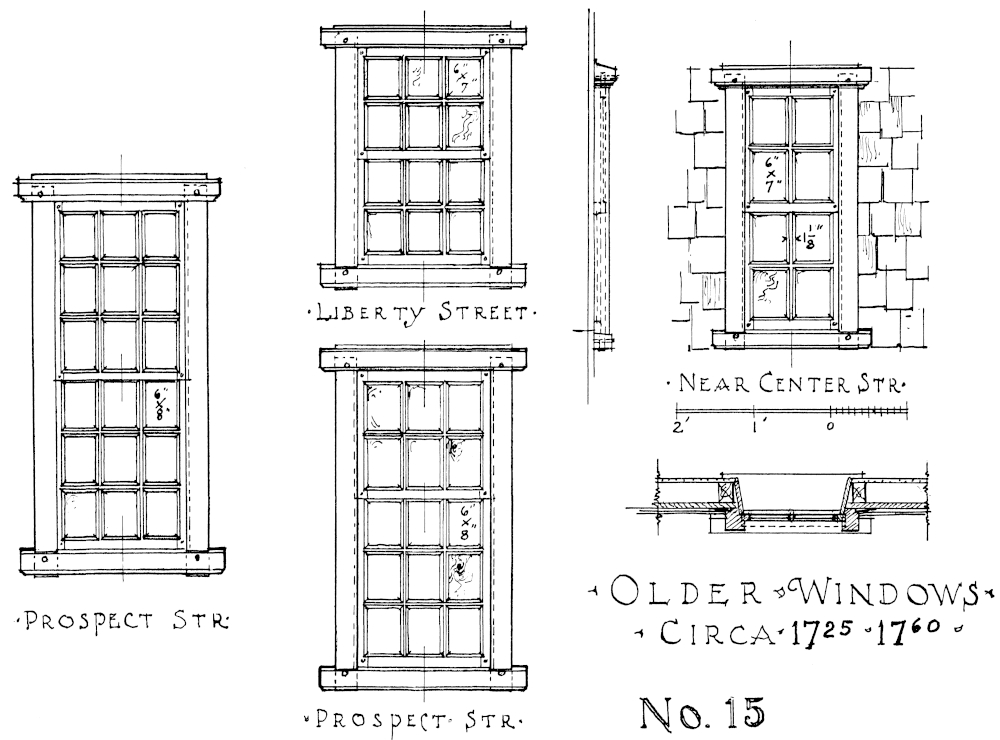 6"
x
8"
·PROSPECT STR·
6"
x
7"
·LIBERTY STREET·
6"
x
8"
·PROSPECT· STR·
6"
x
7"
1 1/8"
·NEAR CENTER STR·
2' 1' 0
·OLDER·WINDOWS·
·CIRCA·1725·1760·
No. 15